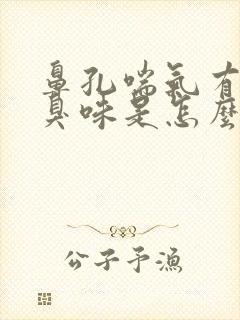 鼻孔喘氣有
臭味是怎麼
公子予漁